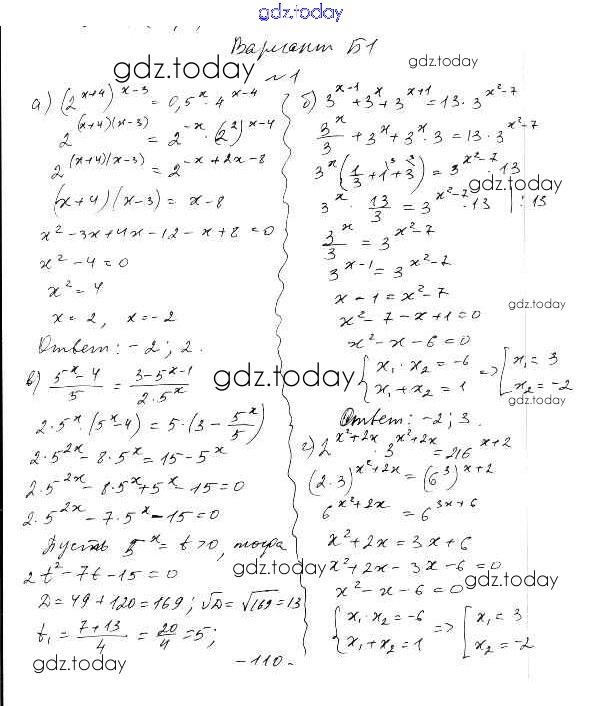 gdz.today
Вариант Б1
gdz.today
gdz.today
№1
а) (2^(x+4))^(x-3) = 0,5^x · 4^(x-4)
2^((x+4)(x-3)) = 2^(-x) · (2^2)^(x-4)
2^((x+4)(x-3)) = 2^(-x+2x-8)
(x+4)(x-3) = x-8
x²-3x+4x-12-x+8=0
x²-4=0
x²=4
x=2, x=-2
Ответ: -2; 2.
в) (5^x-4)/5 = (3-5^(x-1))/(2·5^x)
2·5^x·(5^x-4) = 5·(3-5^x/5)
2·5^(2x)-8·5^x=15-5^x
2·5^(2x)-8·5^x+5^x-15=0
2·5^(2x)-7·5^x-15=0
Пусть 5^x=t>0, тогда
2t²-7t-15=0
D=49+120=169; √D=√169=13
t₁=(7+13)/4=20/4=5;
gdz.today
б) 3^(x-1)+3^x+3^(x+1)=13·3^(x²-7)
3^x/3+3^x+3^x·3=13·3^(x²-7)
3^x(1/3+1+3)=3^(x²-7)·13
gdz.today
3^x·13/3=3^(x²-7)·13 |:13
3^x/3=3^(x²-7)
3^(x-1)=3^(x²-7)
x-1=x²-7
gdz.today
x²-7-x+1=0
x²-x-6=0
{x₁·x₂=-6 => [x₁=3
{x₁+x₂=1 [x₂=-2
gdz.today
gdz.today
Ответ: -2; 3.
г) 2^(x²+2x)·3^(x²+2x)=216^(x+2)
(2·3)^(x²+2x)=(6³)^(x+2)
6^(x²+2x)=6^(3x+6)
x²+2x=3x+6
x²+2x-3x-6=0
gdz.today
x²-x-6=0
gdz.today
{x₁·x₂=-6 => [x₁=3
{x₁+x₂=1 [x₂=-2
gdz.today
-110-